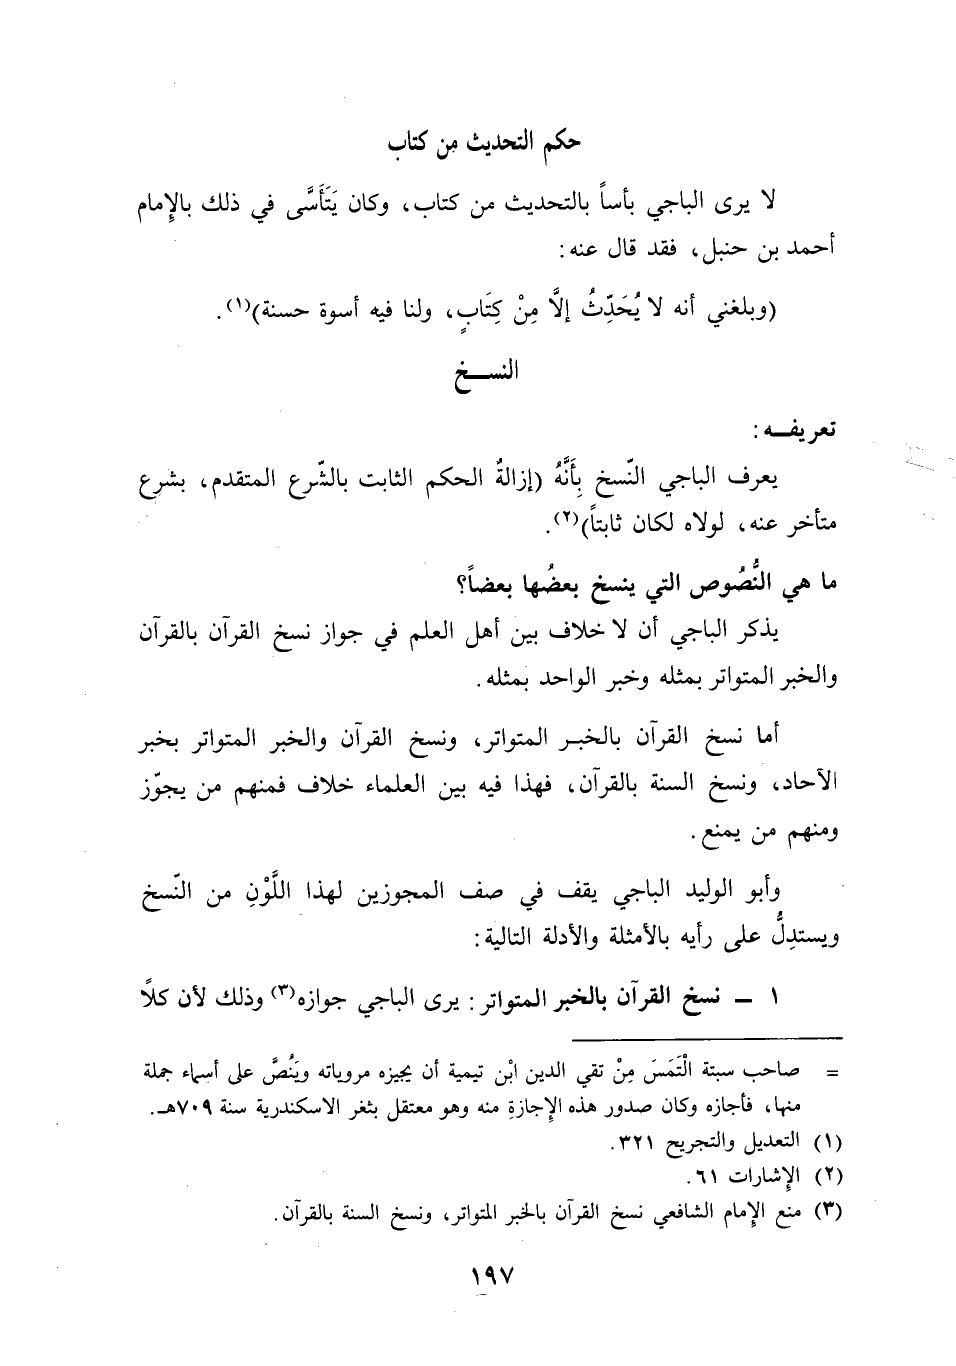 حكم التحديث من كتاب
لا يرى الباجي بأساً بالتحديث من كتاب، وكان يَتَأَسَّى في ذلك بالإِمام
أحمد بن حنبل، فقد قال عنه:
(وبلغني أنه لا يُحَدِّثُ إلاَّ مِنْ كِتَابٍ، ولنا فيه أسوة حسنة)(١).
النســخ
تعريفــه:
يعرف الباجي النّسخ بِأَنَّهُ (إزالةُ الحكم الثابت بالشّرع المتقدم، بشرع
متأخر عنه، لولاه لكان ثابتاً)(٢).
ما هي النُّصُوص التي ينسخ بعضُها بعضاً؟
يذكر الباجي أن لا خلاف بين أهل العلم في جواز نسخ القرآن بالقرآن
والخبر المتواتر بمثله وخبر الواحد بمثله.
أما نسخ القرآن بالخبـر المتواتر، ونسخ القرآن والخبر المتواتر بخبر
الآحاد، ونسخ السنة بالقرآن، فهذا فيه بين العلماء خلاف فمنهم من يجوّز
ومنهم من يمنع.
وأبو الوليد الباجي يقف في صف المجوزين لهذا اللَّوْنِ من النّسخ
ويستدِلُّ على رأيه بالأمثلة والأدلة التالية:
١ ــ نسخ القرآن بالخبر المتواتر: يرى الباجي جوازه(٣) وذلك لأن كلاً
= صاحب سبتة الْتَمَسَ مِنْ تقي الدين ابْن تيمية أن يجيزه مروياته ويَنُصَّ على أسماء جملة
منها، فأجازه وكان صدور هذه الإِجازةِ منه وهو معتقل بثغر الاسكندرية سنة ٧٠٩هـ.
(١) التعديل والتجريح ٣٢١.
(٢) الإِشارات ٦١.
(٣) منع الإِمام الشافعي نسخ القرآن بالخبر المتواتر، ونسخ السنة بالقرآن.
١٩٧